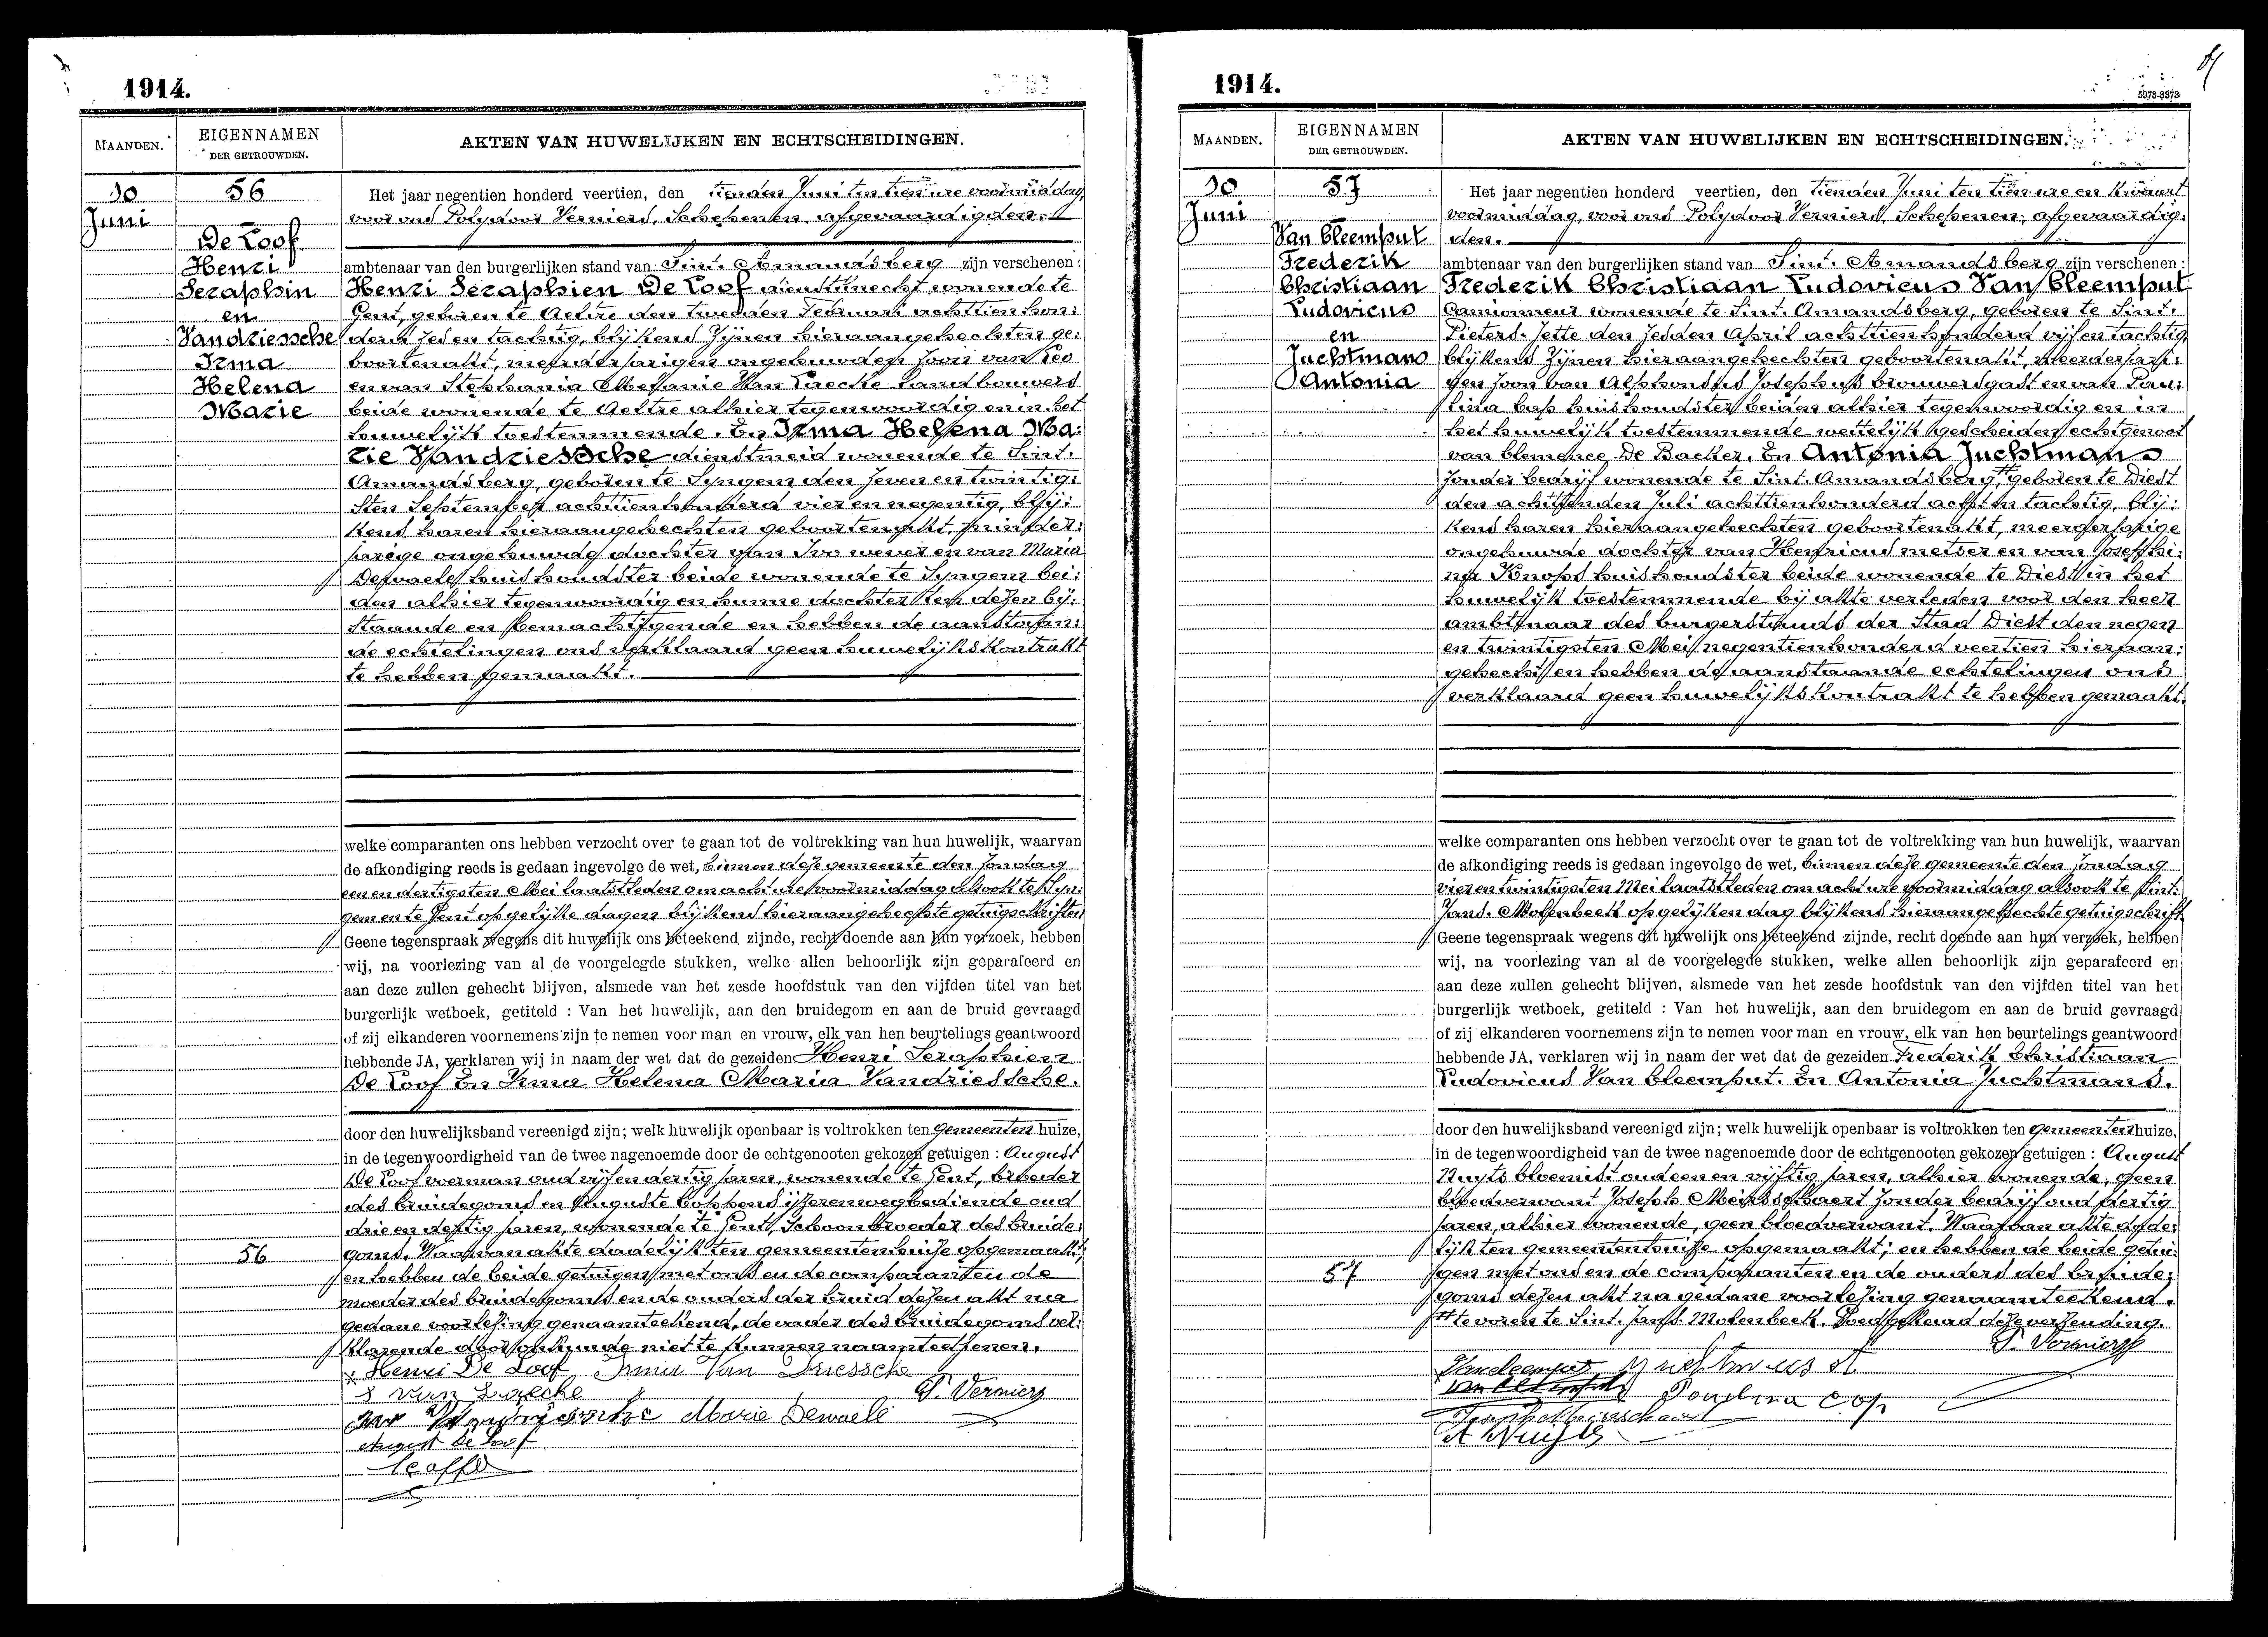 1914.
MAANDEN.
EIGENNAMEN
DER GETROUWDEN.
AKTEN VAN HUWELIJKEN EN ECHTSCHEIDINGEN.
10
Juni
56
De Loof
Henri
Seraphin
en
Vandriessche
Irma
Helena
Marie
Het jaar negentien honderd veertien, den tienden Juni ten tien ure voormiddag,
voor ons Polydoor Verniers, Schepenen, afgevaardigden:
ambtenaar van den burgerlijken stand van Sint. Amandsberg zijn verschenen:
Henri Seraphien De Loof dienstknecht wonende te
Gent, geboren te Aeltre den tweeden Februari achttienhon:
derd zes en tachtig, blijkens zijnen hieraangehechten ge:
boortenakt, meerderjarigen ongehuwden zoon van Leo
en van Stephania Melanie Van Laecke Landbouwers
beide wonende te Aeltre alhier tegenwoordig en in het
huwelijk toestemmende. En Irma Helena Ma:
rie Vandriessche dienstmeid wonende te Sint.
Amandsberg, geboren te Syngem den zeven en twintig:
sten September achttienhonderd vier en negentig, blij:
kens haren hieraangehechten geboortenakt, minder:
jarige ongehuwde dochter van Ivo wever en van Maria
Dewaele huishoudster beide wonende te Syngem bei:
den alhier tegenwoordig en hunne dochter ten dezen bij:
staande en bemachtigende en hebben de aanstaan:
de echtelingen ons verklaard geen huwelijkskontrakt
te hebben gemaakt.
welke comparanten ons hebben verzocht over te gaan tot de voltrekking van hun huwelijk, waarvan
de afkondiging reeds is gedaan ingevolge de wet, binnen deze gemeente den zondag
een en dertigsten Mei laatstleden om acht ure voormiddag alsook te Syn:
gem en te Gent op gelijke dagen blijkens hieraangehechte getuigschriften
Geene tegenspraak wegens dit huwelijk ons beteekend zijnde, recht doende aan hun verzoek, hebben
wij, na voorlezing van al de voorgelegde stukken, welke allen behoorlijk zijn geparafeerd en
aan deze zullen gehecht blijven, alsmede van het zesde hoofdstuk van den vijfden titel van het
burgerlijk wetboek, getiteld : Van het huwelijk, aan den bruidegom en aan de bruid gevraagd
of zij elkanderen voornemens zijn te nemen voor man en vrouw, elk van hen beurtelings geantwoord
hebbende JA, verklaren wij in naam der wet dat de gezeiden Henri Seraphien
De Loof En Irma Helena Maria Vandriessche.
door den huwelijksband vereenigd zijn; welk huwelijk openbaar is voltrokken ten Gemeentenhuize,
in de tegenwoordigheid van de twee nagenoemde door de echtgenooten gekozen getuigen : August
De Loof voerman oud vijf en dertig jaren, wonende te Gent, broeder
des bruidegoms en Auguste Coppens ijzerenwegbediende oud
drie en dertig jaren, wonende te Gent, Schoonbroeder des bruide:
goms. Waarvan akte dadelijk ten gemeentenhuize opgemaakt;
56
en hebben de beide getuigen met ons en de comparanten de
moeder des bruidegoms en de ouders der bruid dezen akt na
gedane voorlezing genaamteekend, de vader des bruidegoms ver:
klarende door onkunde niet te kunnen naamteekenen.
Henri De Loof Irma Van Driessche
S van Laecke P. Verniers
Ivo Vandriessche Marie Dewaele
August De Loof
1914.
5373-3373
MAANDEN.
EIGENNAMEN
DER GETROUWDEN.
AKTEN VAN HUWELIJKEN EN ECHTSCHEIDINGEN.
10
Juni
57
Van Cleemput
Frederik
Christiaan
Ludovicus
en
Juchtmans
Antonia
Het jaar negentien honderd veertien, den tienden Juni ten tien ure en kwaart
voormiddag, voor ons Polydoor Verniers, Schepenen, afgevaardig:
den.
ambtenaar van den burgerlijken stand van Sint. Amandsberg zijn verschenen:
Frederik Christiaan Ludovicus Van Cleemput
Camionneur wonende te Sint. Amandsberg, geboren te Sint.
Pieters. Jette den zesden April achttienhonderd vijf en tachtig,
blijkens zijnen hieraangehechten geboortenakt, meerderjari:
gen zoon van Alphonsius Josephus brouwersgast en van Pau:
lina Cop huishoudster beiden alhier tegenwoordig en in
het huwelijk toestemmende wettelijk gescheiden echtgenoot
van Clemence De Backer. En Antonia Juchtmans
zonder bedrijf wonende te Sint. Amandsberg, geboren te Diest
den achttienden Juli achttienhonderd acht en tachtig, blij:
kens haren hieraangehechten geboortenakt, meerderjarige
ongehuwde dochter van Henricus metser en van Josephi:
na Knops huishoudster beide wonende te Diest in het
huwelijk toestemmende bij akte verleden voor den heer
ambtenaar des burgerstands der Stad Diest den negen
en twintigsten Mei negentienhonderd veertien hieraan:
gehecht en hebben de aanstaande echtelingen ons
verklaard geen huwelijkskontrakt te hebben gemaakt.
welke comparanten ons hebben verzocht over te gaan tot de voltrekking van hun huwelijk, waarvan
de afkondiging reeds is gedaan ingevolge de wet, binnen deze gemeente den zondag
vier en twintigsten Mei laatstleden om acht ure voormiddag alsook te Sint.
Jans. Molenbeek op gelijken dag blijkens hieraangehechte getuigschrift
Geene tegenspraak wegens dit huwelijk ons beteekend zijnde, recht doende aan hun verzoek, hebben
wij, na voorlezing van al de voorgelegde stukken, welke allen behoorlijk zijn geparafeerd en
aan deze zullen gehecht blijven, alsmede van het zesde hoofdstuk van den vijfden titel van het
burgerlijk wetboek, getiteld : Van het huwelijk, aan den bruidegom en aan de bruid gevraagd
of zij elkanderen voornemens zijn te nemen voor man en vrouw, elk van hen beurtelings geantwoord
hebbende JA, verklaren wij in naam der wet dat de gezeiden Frederik Christiaan
Ludovicus Van Cleemput. En Antonia Juchtmans.
door den huwelijksband vereenigd zijn; welk huwelijk openbaar is voltrokken ten Gemeentenhuize,
in de tegenwoordigheid van de twee nagenoemde door de echtgenooten gekozen getuigen : August
Nuyts bloemist oud een en vijftig jaren, alhier wonende, geen
bloedverwant Joseph Meirsschaert zonder bedrijf oud dertig
jaren, alhier wonende, geen bloedverwant. Waarvan akte dade:
lijk ten gemeentenhuize opgemaakt; en hebben de beide getui:
57
gen met ons en de comparanten en de ouders des bruide:
goms dezen akt na gedane voorlezing genaamteekend.
te voren te Sint. Jans. Molenbeek. Goedgekeurd deze verzending.
P. Verniers
Vancleemput Juchtmans A
Paulina Cop
A Nuyts